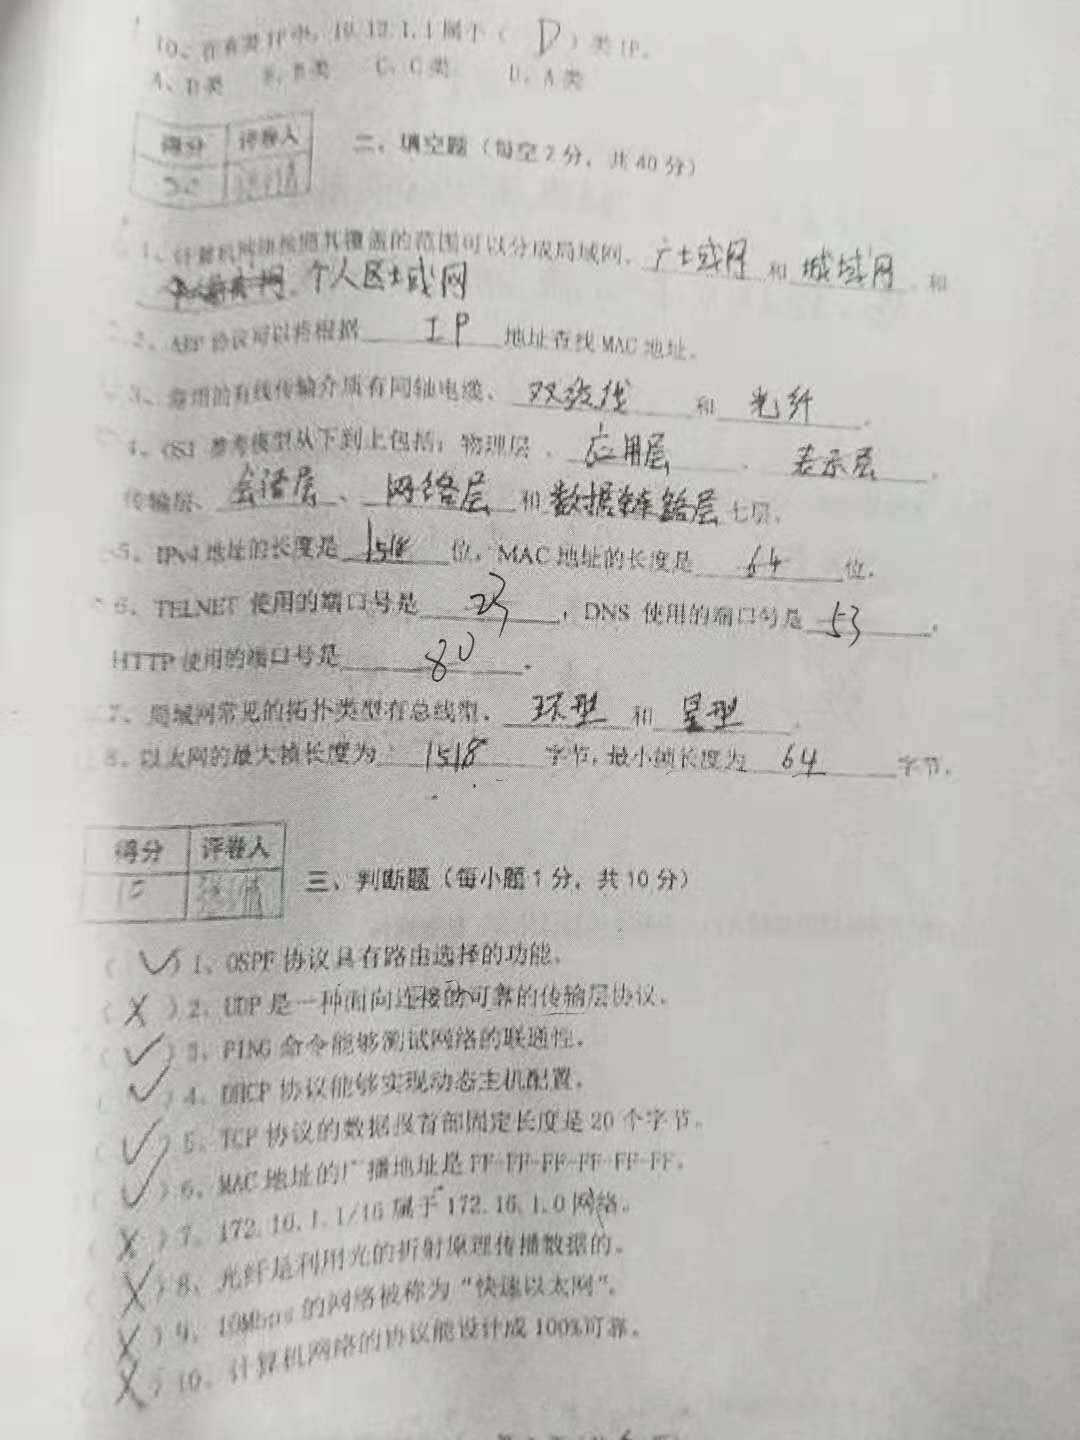 10、在各类IP中，10.10.1.1属于（ D ）类IP。
A、D类 B、B类 C、C类 D、A类
得分 评卷人 二、填空题（每空2分，共40分）
1、计算机网络按照其覆盖的范围可以分成局域网、广域网 和 城域网 和
个人区域网
2、ARP 协议可以将根据 IP 地址查找 MAC 地址。
3、常用的有线传输介质有同轴电缆、双绞线 和 光纤 。
4、OSI 参考模型从下到上包括：物理层、应用层 、 表示层 、
传输层、会话层 、 网络层 和 数据链路层 七层。
5、IPv4 地址的长度是 1518 位，MAC 地址的长度是 64 位。
6、TELNET 使用的端口号是 23 ，DNS 使用的端口号是 53 ，
HTTP 使用的端口号是 80 。
7、局域网常见的拓扑类型有总线型、环型 和 星型 。
8、以太网的最大帧长度为 1518 字节，最小帧长度为 64 字节。
得分 评卷人 三、判断题（每小题1分，共10分）
（ ✓ ）1、OSPF 协议具有路由选择的功能。
（ X ）2、UDP 是一种面向连接的可靠的传输层协议。
（ ✓ ）3、PING 命令能够测试网络的联通性。
（ ✓ ）4、DHCP 协议能够实现动态主机配置。
（ ✓ ）5、TCP 协议的数据报首部固定长度是 20 个字节。
（ ✓ ）6、MAC 地址的广播地址是 FF-FF-FF-FF-FF-FF。
（ X ）7、172.16.1.1/16 属于 172.16.1.0 网络。
（ X ）8、光纤是利用光的折射原理传播数据的。
（ X ）9、10Mbps 的网络被称为“快速以太网”。
（ X ）10、计算机网络的协议能设计成 100%可靠。